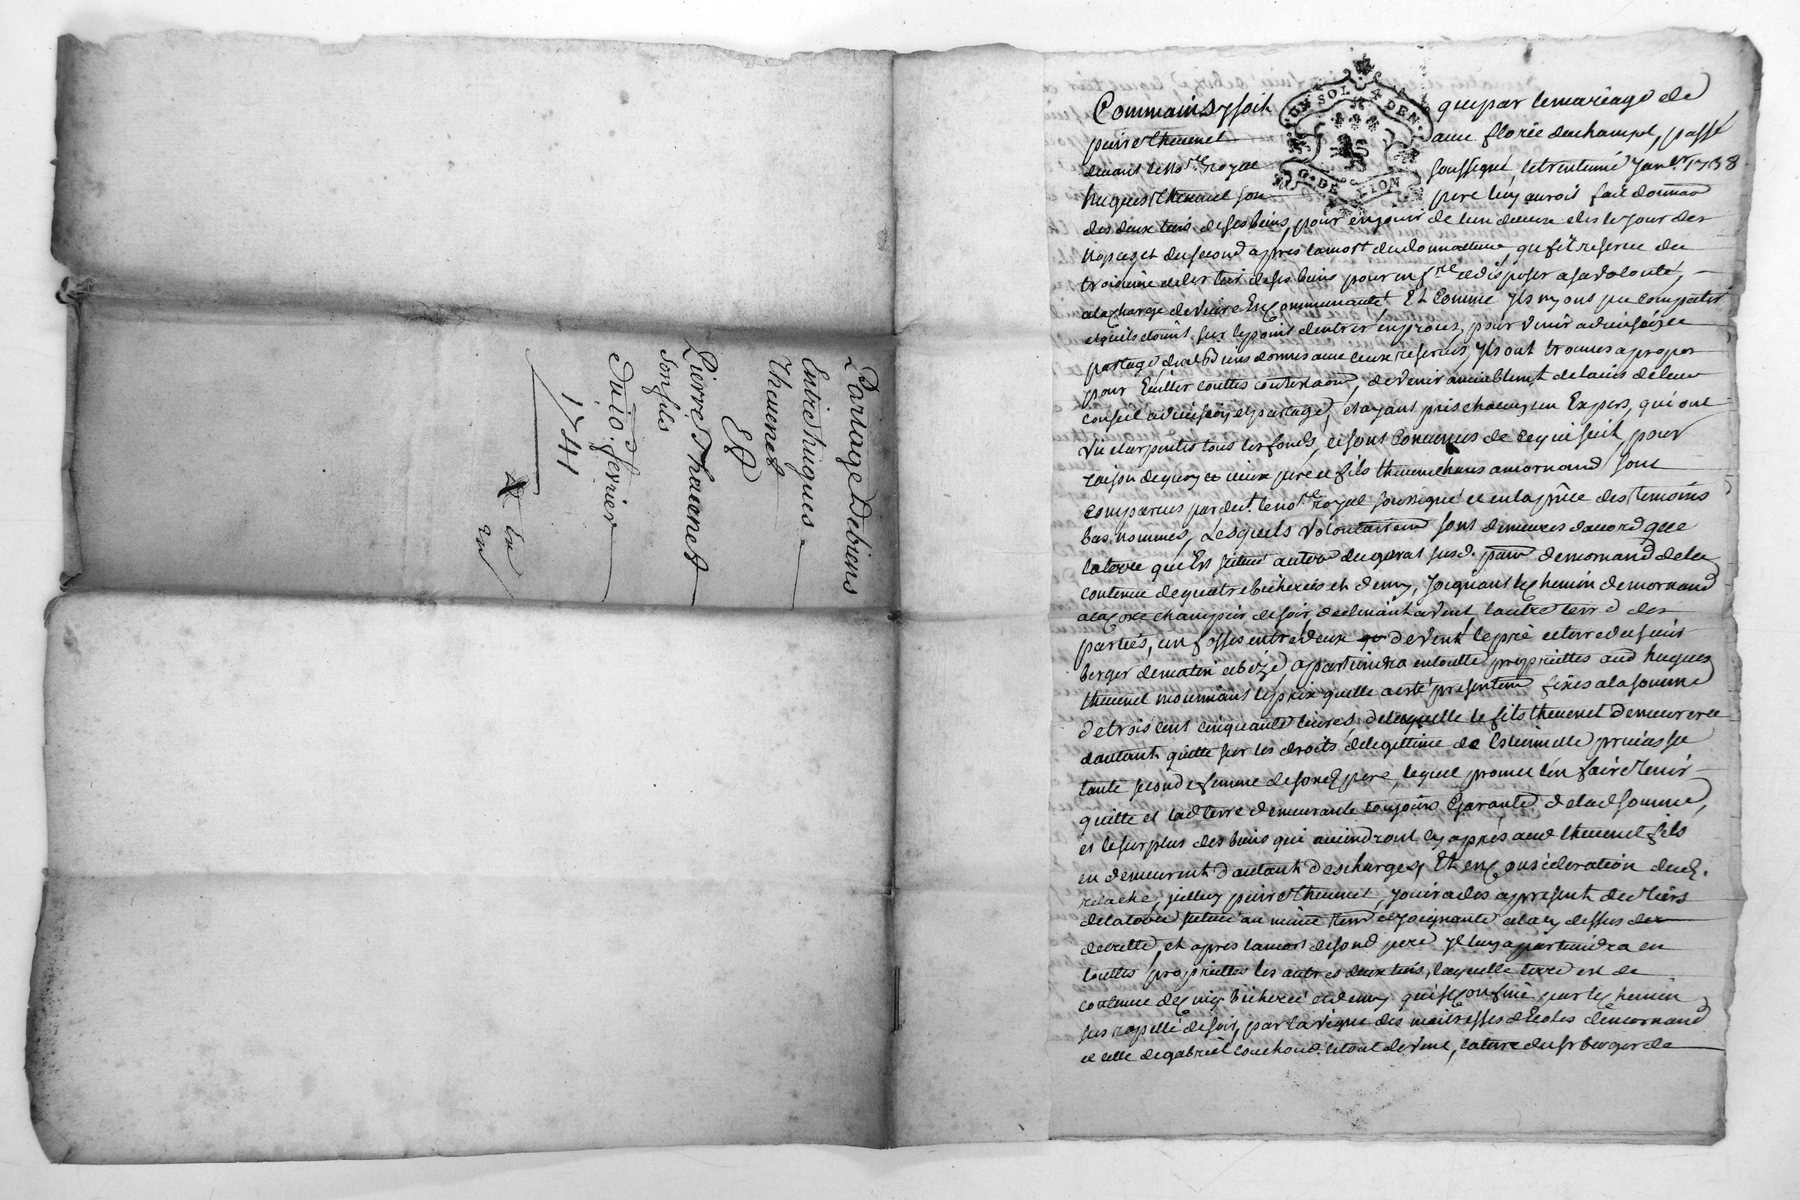 Partage De biens
Entre hugues
Thauenet
Et
Pierre Thauenet
Son fils
Du 10.e fevrier
1741
UN SOL 4 DEN.
G. DE LION
Comme ainsy soit que par le mariage de
pierre theuenet auec florie deschamps, passé
deuant le no.re royal soussigné, le trentunie Jan.er 1738
hugues theuenet son pere luy auroit fait donnaō
des deux tiers de ses biens, pour en jouir de lun deux des le jour des
nopces et du second apres la mort du donnateur, qu fit reserue du
troisieme et der tier de ses biens pour en p.re et disposer a sa volonté,
a la charge de viure en communauté Et Comme Ils ny ont pu compatir
et quils etoint sur le point dentrer en proces, pour venir a diuision et
partage des biens donnés auec ceux reserués, Ils ont trouués a propos
pour Euitter touttes contestaōn, de venir amiablemt de lauis de leur
conseil a diuision et partage, et ayant pris chacun un Expers, qui ont
vu et arpentés tous les fonds, et sont Conuenus de ce qui suit, pour
raison de quoy ceux pere et fils theuenet a mornand sont
comparus par deut. le no.re royal soussigné et en la pñce des temoins
bas nommés, Lesquels volontairem sont demeurés daccord que
la terre qui Est situé au terr du gorat susd. parr de mornand de la
contenue de quatre bicherées et demy, joignant le chemin de mornand
a la croix de soir, declinant a vent, lautre terre des
parties, un fossés entre deux de vent, le pré et terre du sieur
berger de matin et bize, apartiendra en toutte proprietté aud hugues
theuenet moiennant le prix quelle a esté presentem fixés a la somme
de trois cent cinquante liures, de laquelle le fils theuenet demeurera
dautant quitte sur les droits de legittime de Estiennette
tante seconde femme de sond pere, lequel promet len faire tenir
quitte et lad terre demeurante toujours Garante de lad somme,
et le surplus des biens qui auiendront cy apres aud theuenet fils
en demeurent dautant deschargés, Et en Consideration dud.
relache, jcelluy pierre theuenet, jouira des a present du tiers
de la terre situeé au meme terr et joignante a la cy dessus
et apres la mort de sond pere Il luy apartiendra en
touttes proprietés les autres deux tiers, laquelle terre est de
contenue de cinq bicheré et demy qui se confine par le chemin
sus rapellé de soir, par la vigne des maitresses dEcoles de mornand
et celle de gabriel couchoud. le tout de vent, la terre du sr berger de